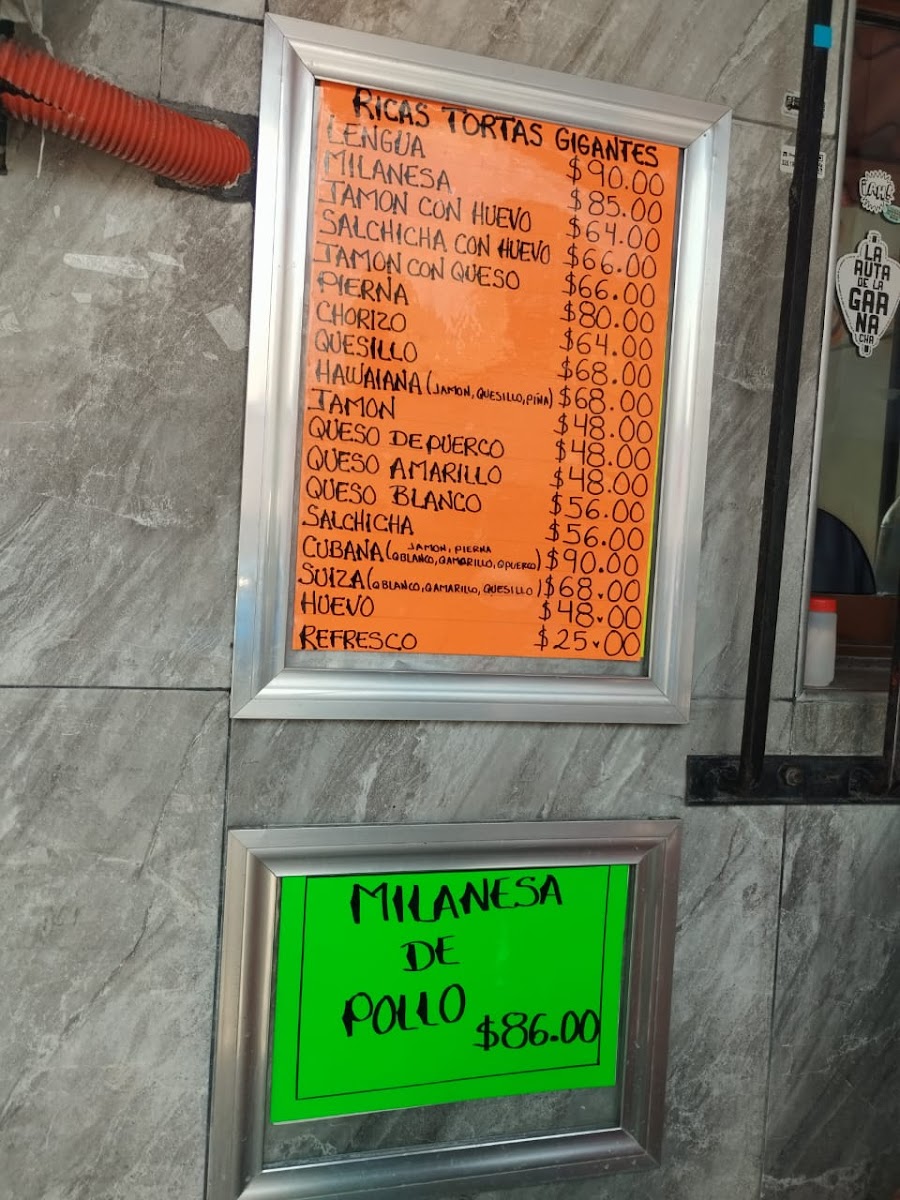 RICAS TORTAS GIGANTES
LENGUA $90.00
MILANESA $85.00
JAMON CON HUEVO $64.00
SALCHICHA CON HUEVO $66.00
JAMON CON QUESO $66.00
PIERNA $80.00
CHORIZO $64.00
QUESILLO $68.00
HAWAIANA (JAMON, QUESILLO, PIÑA) $68.00
JAMON $48.00
QUESO DE PUERCO $48.00
QUESO AMARILLO $48.00
QUESO BLANCO $56.00
SALCHICHA $56.00
CUBANA (JAMON, PIERNA QBLANCO, QAMARILLO, QPUERCO) $90.00
SUIZA (QBLANCO, QAMARILLO, QUESILLO) $68.00
HUEVO $48.00
REFRESCO $25.00
MILANESA
DE
POLLO
$86.00
LA
RUTA
DE LA
GAR
NA
CHA